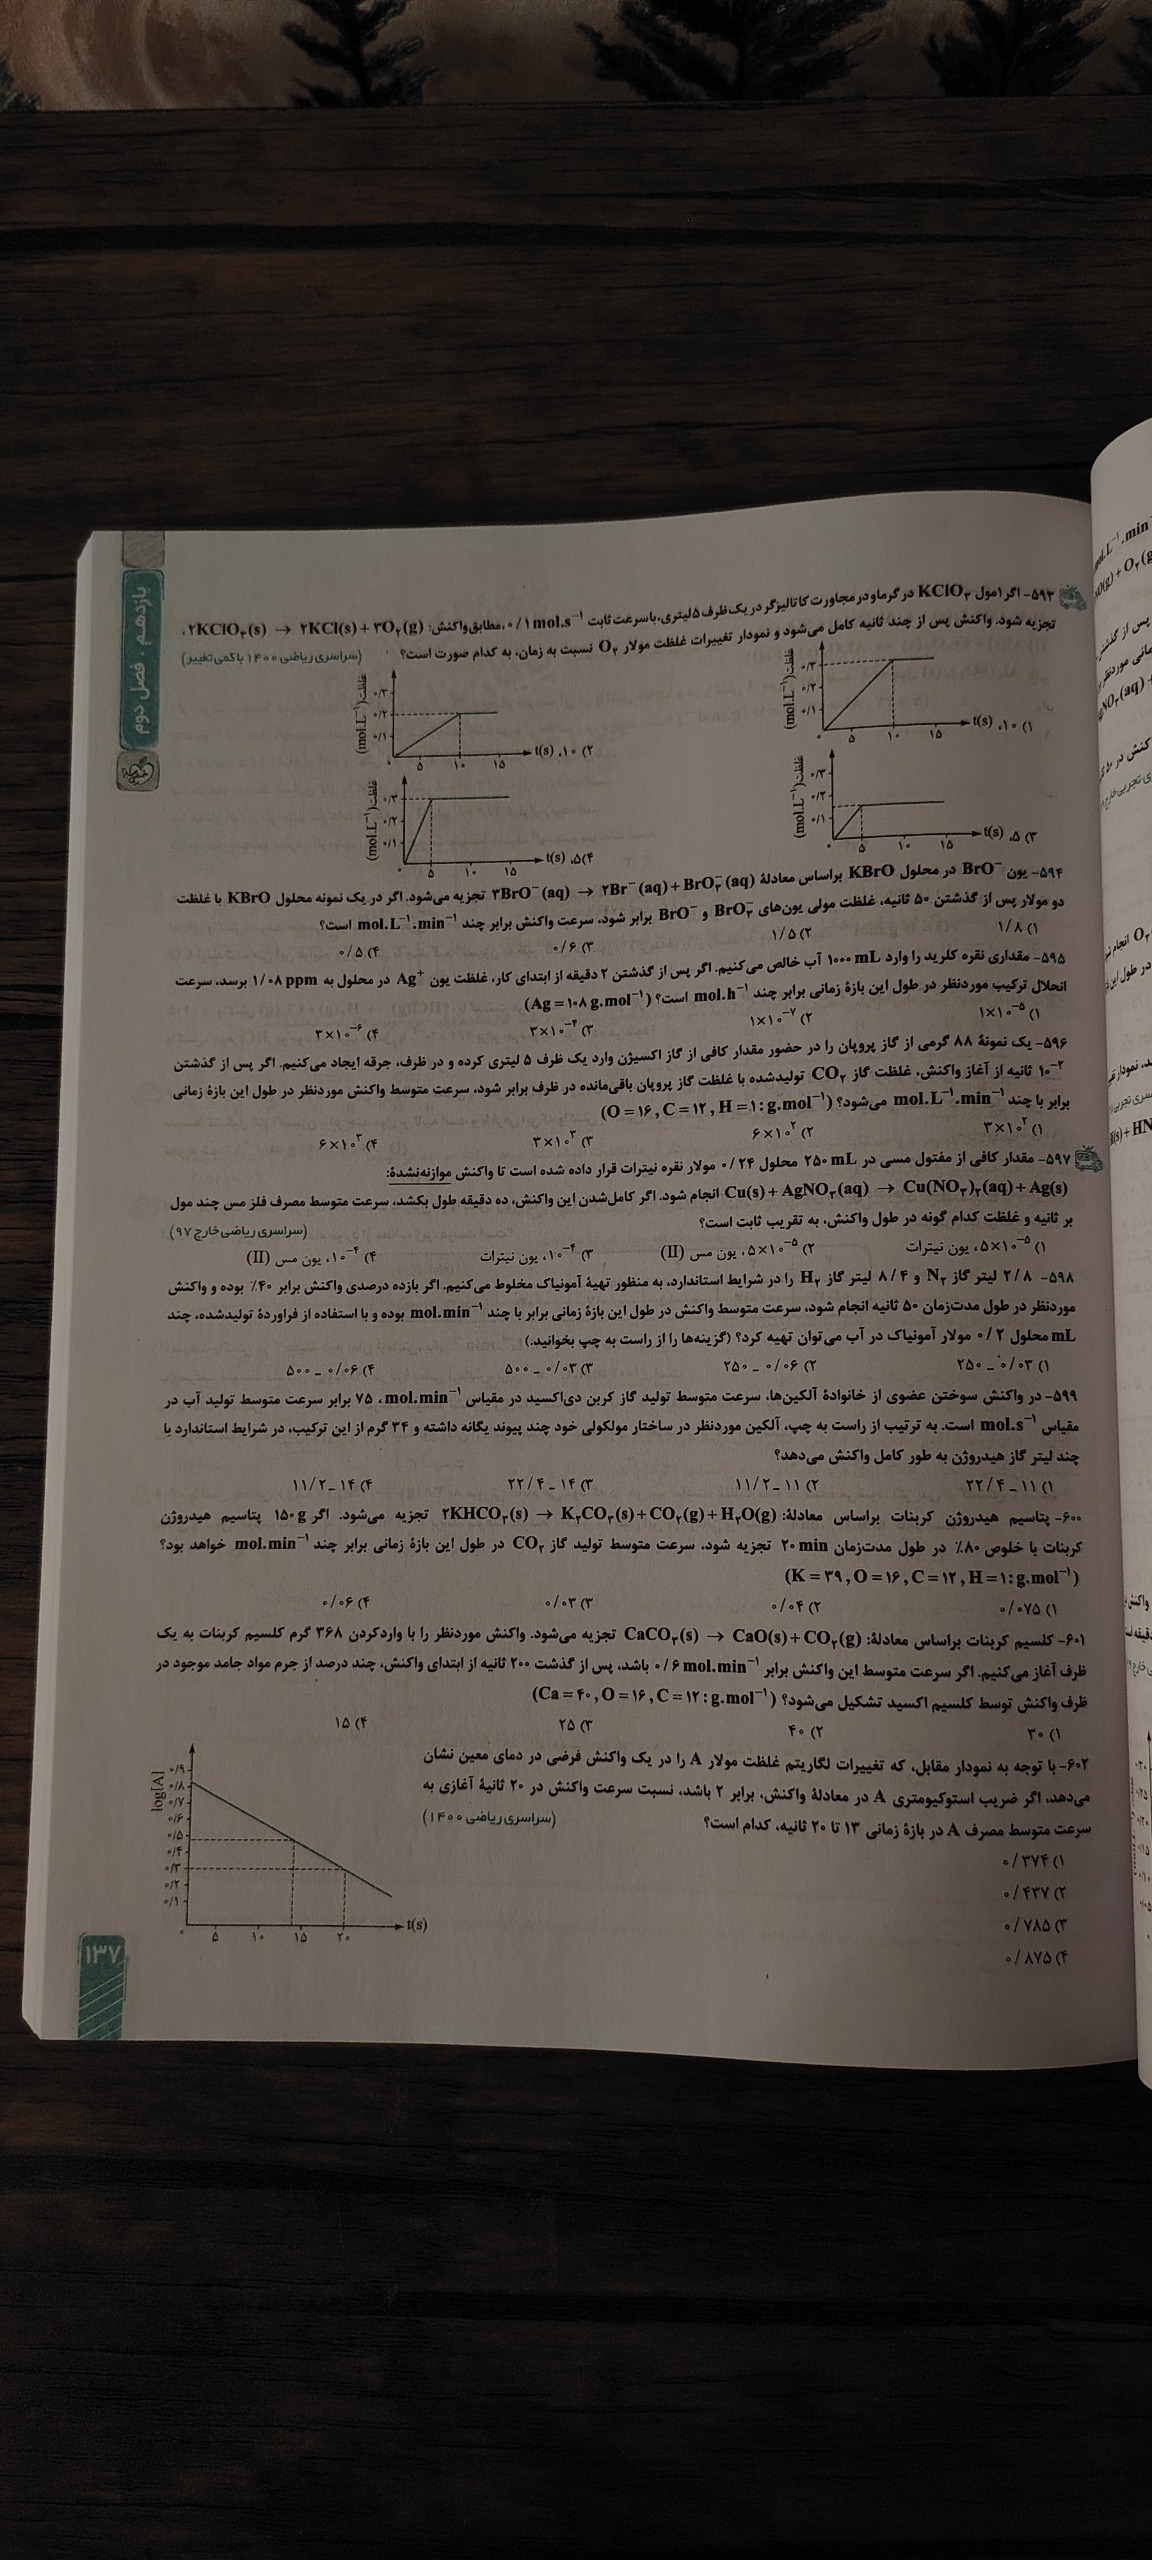 یازدهم . فصل دوم
۵۹۳- اگر ۱ مول KClO۳ در گرما و در مجاورت کاتالیزگر در یک ظرف ۵ لیتری، با سرعت ثابت ۰/۱ mol.s⁻¹، مطابق واکنش: ۲KClO۳(s) → ۲KCl(s) + ۳O۲(g)،
تجزیه شود. واکنش پس از چند ثانیه کامل می‌شود و نمودار تغییرات غلظت مولار O۲ نسبت به زمان، به کدام صورت است؟ (سراسری ریاضی ۱۴۰۰ با کمی تغییر)
۱) ۱۰، t(s) غلظت (mol.L⁻¹) ۰/۳ ۰/۲ ۰/۱ ۰ ۵ ۱۰ ۱۵
۲) ۱۰، t(s) غلظت (mol.L⁻¹) ۰/۳ ۰/۲ ۰/۱ ۰ ۵ ۱۰ ۱۵
۳) ۵، t(s) غلظت (mol.L⁻¹) ۰/۳ ۰/۲ ۰/۱ ۰ ۵ ۱۰ ۱۵
۴) ۵، t(s) غلظت (mol.L⁻¹) ۰/۳ ۰/۲ ۰/۱ ۰ ۵ ۱۰ ۱۵
۵۹۴- یون BrO⁻ در محلول KBrO براساس معادلهٔ ۳BrO⁻(aq) → ۲Br⁻(aq) + BrO۳⁻(aq) تجزیه می‌شود. اگر در یک نمونه محلول KBrO با غلظت
دو مولار پس از گذشتن ۵۰ ثانیه، غلظت مولی یون‌های BrO۳⁻ و BrO⁻ برابر شود، سرعت واکنش برابر چند mol.L⁻¹.min⁻¹ است؟
۱) ۱/۸ ۲) ۱/۵ ۳) ۰/۶ ۴) ۰/۵
۵۹۵- مقداری نقره کلرید را وارد ۱۰۰۰ mL آب خالص می‌کنیم. اگر پس از گذشتن ۲ دقیقه از ابتدای کار، غلظت یون Ag⁺ در محلول به ۱/۰۸ ppm برسد، سرعت
انحلال ترکیب موردنظر در طول این بازهٔ زمانی برابر چند mol.h⁻¹ است؟ (Ag = ۱۰۸ g.mol⁻¹)
۱) ۱×۱۰⁻⁵ ۲) ۱×۱۰⁻⁷ ۳) ۳×۱۰⁻⁴ ۴) ۳×۱۰⁻⁶
۵۹۶- یک نمونهٔ ۸۸ گرمی از گاز پروپان را در حضور مقدار کافی از گاز اکسیژن وارد یک ظرف ۵ لیتری کرده و در ظرف، جرقه ایجاد می‌کنیم. اگر پس از گذشتن
۱۰⁻² ثانیه از آغاز واکنش، غلظت گاز CO۲ تولیدشده با غلظت گاز پروپان باقی‌مانده در ظرف برابر شود، سرعت متوسط واکنش موردنظر در طول این بازهٔ زمانی
برابر با چند mol.L⁻¹.min⁻¹ می‌شود؟ (O = ۱۶, C = ۱۲, H = ۱ : g.mol⁻¹)
۱) ۳×۱۰² ۲) ۶×۱۰² ۳) ۳×۱۰³ ۴) ۶×۱۰³
۵۹۷- مقدار کافی از مفتول مسی در ۲۵۰ mL محلول ۰/۲۴ مولار نقره نیترات قرار داده شده است تا واکنش موازنه‌نشدهٔ:
Cu(s) + AgNO۳(aq) → Cu(NO۳)۲(aq) + Ag(s) انجام شود. اگر کامل‌شدن این واکنش، ده دقیقه طول بکشد، سرعت متوسط مصرف فلز مس چند مول
بر ثانیه و غلظت کدام گونه در طول واکنش، به تقریب ثابت است؟ (سراسری ریاضی خارج ۹۷)
۱) ۵×۱۰⁻⁵، یون نیترات ۲) ۵×۱۰⁻⁵، یون مس (II) ۳) ۱۰⁻⁴، یون نیترات ۴) ۱۰⁻⁴، یون مس (II)
۵۹۸- ۲/۸ لیتر گاز N۲ و ۸/۴ لیتر گاز H۲ را در شرایط استاندارد، به منظور تهیهٔ آمونیاک مخلوط می‌کنیم. اگر بازده درصدی واکنش برابر ۴۰٪ بوده و واکنش
موردنظر در طول مدت‌زمان ۵۰ ثانیه انجام شود، سرعت متوسط واکنش در طول این بازهٔ زمانی برابر با چند mol.min⁻¹ بوده و با استفاده از فراوردهٔ تولیدشده، چند
mL محلول ۰/۲ مولار آمونیاک در آب می‌توان تهیه کرد؟ (گزینه‌ها را از راست به چپ بخوانید.)
۱) ۰/۰۳ - ۲۵۰ ۲) ۰/۰۶ - ۲۵۰ ۳) ۰/۰۳ - ۵۰۰ ۴) ۰/۰۶ - ۵۰۰
۵۹۹- در واکنش سوختن عضوی از خانوادهٔ آلکین‌ها، سرعت متوسط تولید گاز کربن دی‌اکسید در مقیاس mol.min⁻¹، ۷۵ برابر سرعت متوسط تولید آب در
مقیاس mol.s⁻¹ است. به ترتیب از راست به چپ، آلکین موردنظر در ساختار مولکولی خود چند پیوند یگانه داشته و ۳۴ گرم از این ترکیب، در شرایط استاندارد با
چند لیتر گاز هیدروژن به طور کامل واکنش می‌دهد؟
۱) ۱۱ - ۲۲/۴ ۲) ۱۱ - ۱۱/۲ ۳) ۱۴ - ۲۲/۴ ۴) ۱۴ - ۱۱/۲
۶۰۰- پتاسیم هیدروژن کربنات براساس معادلهٔ: ۲KHCO۳(s) → K۲CO۳(s) + CO۲(g) + H۲O(g) تجزیه می‌شود. اگر ۱۵۰ g پتاسیم هیدروژن
کربنات با خلوص ۸۰٪ در طول مدت‌زمان ۲۰ min تجزیه شود، سرعت متوسط تولید گاز CO۲ در طول این بازهٔ زمانی برابر چند mol.min⁻¹ خواهد بود؟
(K = ۳۹, O = ۱۶, C = ۱۲, H = ۱ : g.mol⁻¹)
۱) ۰/۰۷۵ ۲) ۰/۰۴ ۳) ۰/۰۳ ۴) ۰/۰۶
۶۰۱- کلسیم کربنات براساس معادلهٔ: CaCO۳(s) → CaO(s) + CO۲(g) تجزیه می‌شود. واکنش موردنظر را با واردکردن ۳۶۸ گرم کلسیم کربنات به یک
ظرف آغاز می‌کنیم. اگر سرعت متوسط این واکنش برابر ۰/۶ mol.min⁻¹ باشد، پس از گذشت ۲۰۰ ثانیه از ابتدای واکنش، چند درصد از جرم مواد جامد موجود در
ظرف واکنش توسط کلسیم اکسید تشکیل می‌شود؟ (Ca = ۴۰, O = ۱۶, C = ۱۲ : g.mol⁻¹)
۱) ۳۰ ۲) ۴۰ ۳) ۲۵ ۴) ۱۵
۶۰۲- با توجه به نمودار مقابل، که تغییرات لگاریتم غلظت مولار A را در یک واکنش فرضی در دمای معین نشان
می‌دهد، اگر ضریب استوکیومتری A در معادلهٔ واکنش، برابر ۲ باشد، نسبت سرعت واکنش در ۲۰ ثانیهٔ آغازی به
سرعت متوسط مصرف A در بازهٔ زمانی ۱۳ تا ۲۰ ثانیه، کدام است؟ (سراسری ریاضی ۱۴۰۰)
۱) ۰/۳۷۴
۲) ۰/۴۳۷
۳) ۰/۷۸۵
۴) ۰/۸۷۵
log[A]
۰/۹
۰/۸
۰/۷
۰/۶
۰/۵
۰/۴
۰/۳
۰/۲
۰/۱
۰ ۵ ۱۰ ۱۵ ۲۰ t(s)
۱۳۷